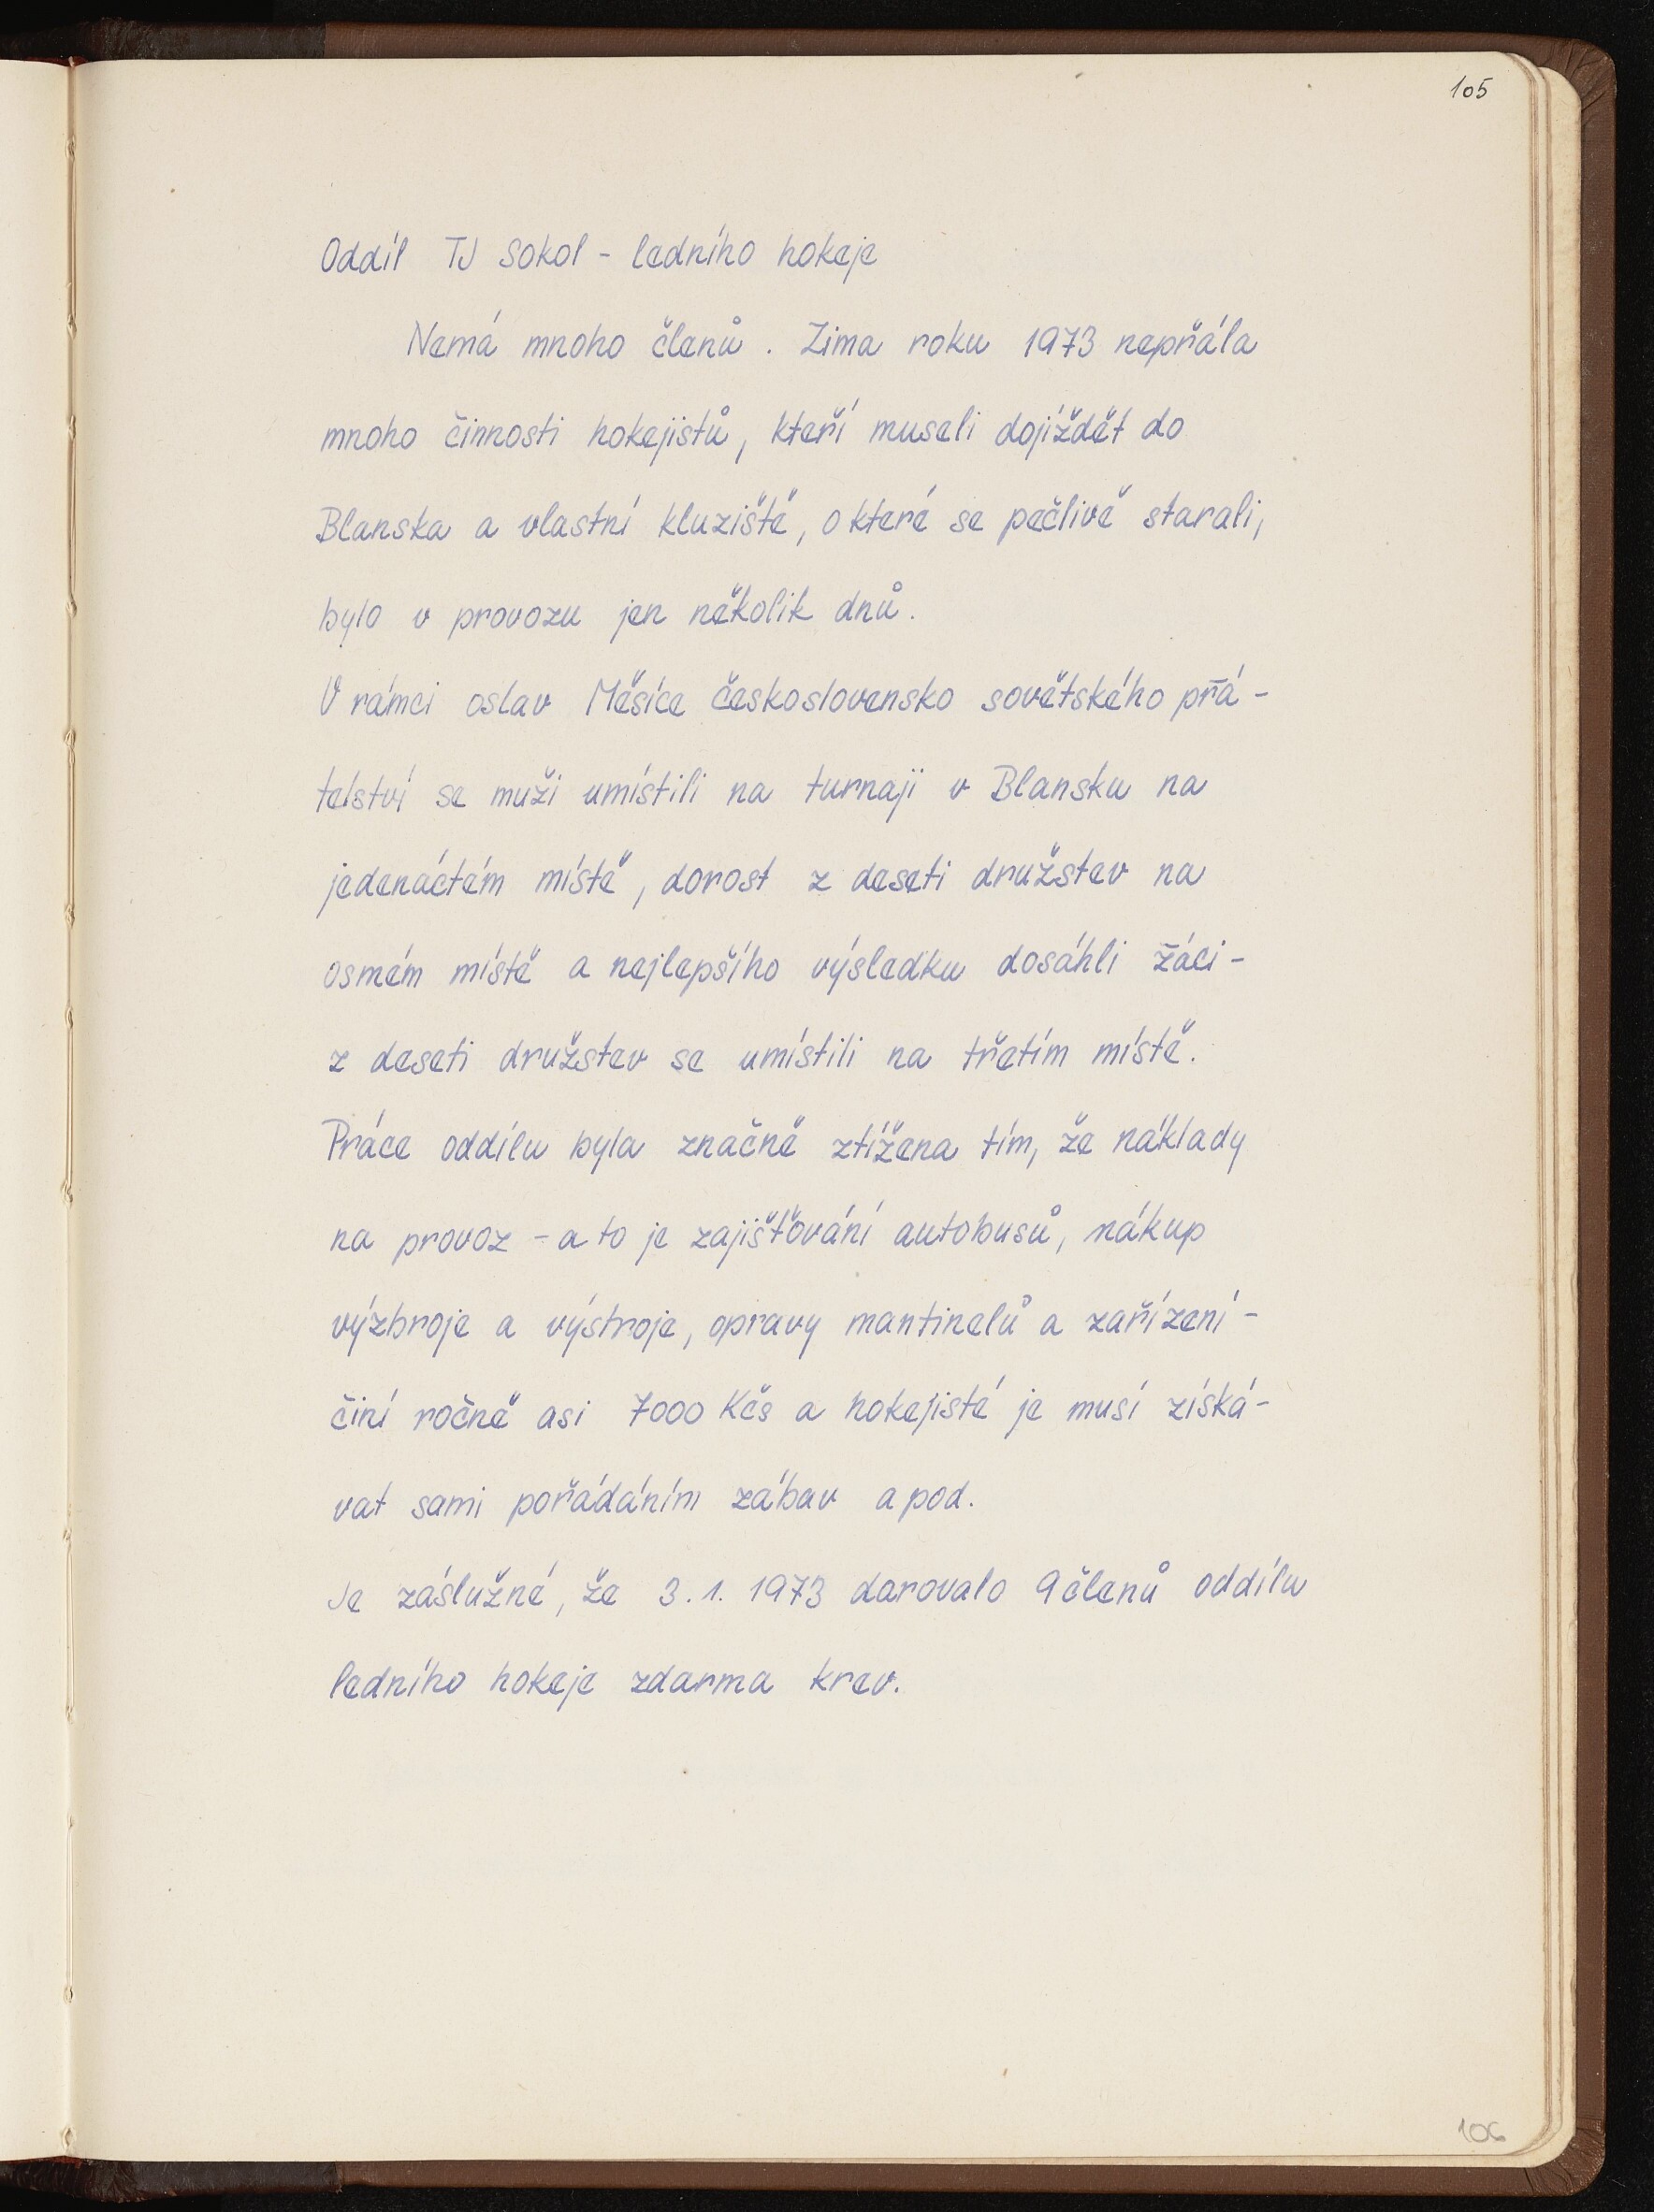 105
Oddíl TJ Sokol - ledního hokeje
Nemá mnoho členů. Zima roku 1973 nepřála
mnoho činnosti hokejistů, kteří museli dojíždět do
Blanska a vlastní kluziště, o které se pečlivě starali,
bylo v provozu jen několik dnů.
V rámci oslav Měsíce československo sovětského přá-
telství se muži umístili na turnaji v Blansku na
jedenáctém místě, dorost z deseti družstev na
osmém místě a nejlepšího výsledku dosáhli žáci -
z deseti družstev se umístili na třetím místě.
Práce oddílu byla značně ztížena tím, že náklady
na provoz - a to je zajišťování autobusů, nákup
výzbroje a výstroje, opravy mantinelů a zařízení -
činí ročně asi 7000 Kčs a hokejisté je musí získá-
vat sami pořádáním zábav a pod.
Je záslužné, že 3. 1. 1973 darovalo 9 členů oddílu
ledního hokeje zdarma krev.
106